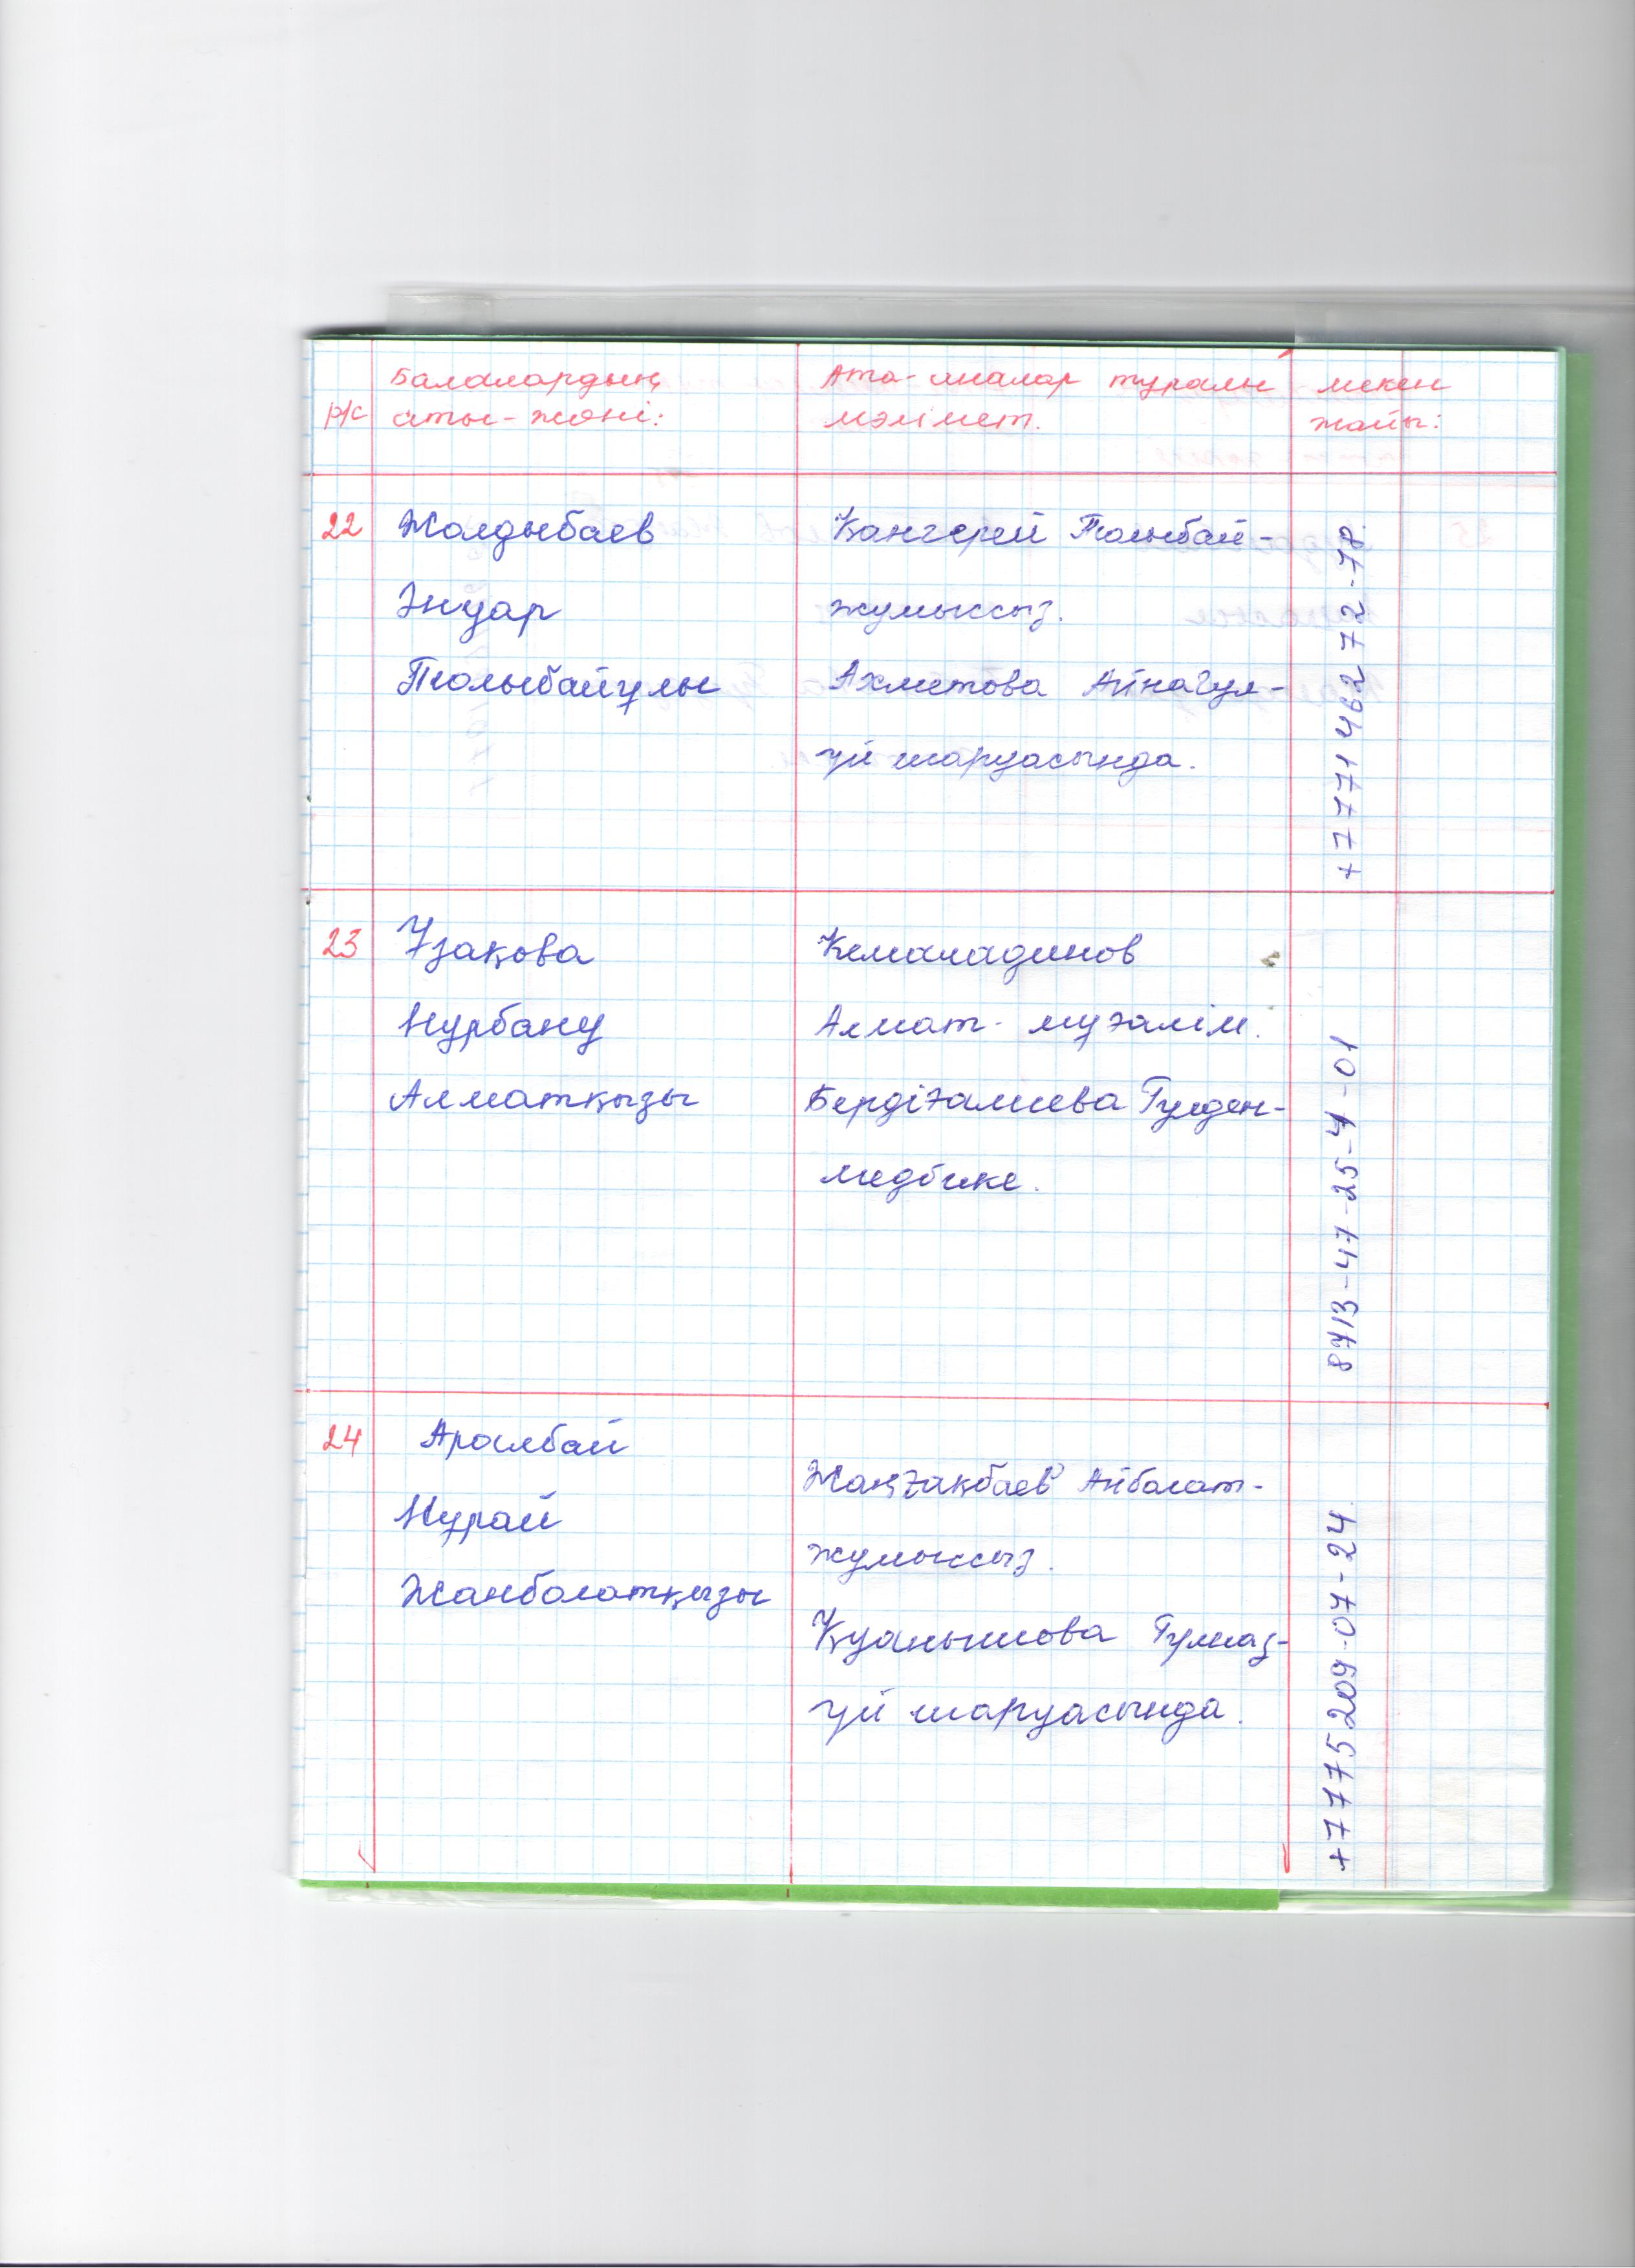 р/с
Балалардың
аты-жөні:
Ата-аналар туралы
мәлімет.
мекен
жайы:
22
Жолдыбаев
Әнуар
Толыбайұлы
Кангерей Толыбай-
жұмыссыз.
Ахметова Айнагул-
үй шаруасында.
+7 771 462 72-78.
23
Ұзақова
Нұрбану
Алматқызы
Кемаладинов
Алмат- мұғалім.
Бердіғалиева Гулден-
медбике.
8713-47-25-7-01
24
Аралбай
Нұрай
Жанболатқызы
Жаңғақбаев Айболат-
жұмыссыз.
Қуанышова Гулназ-
үй шаруасында.
+7 775 209-07-24.